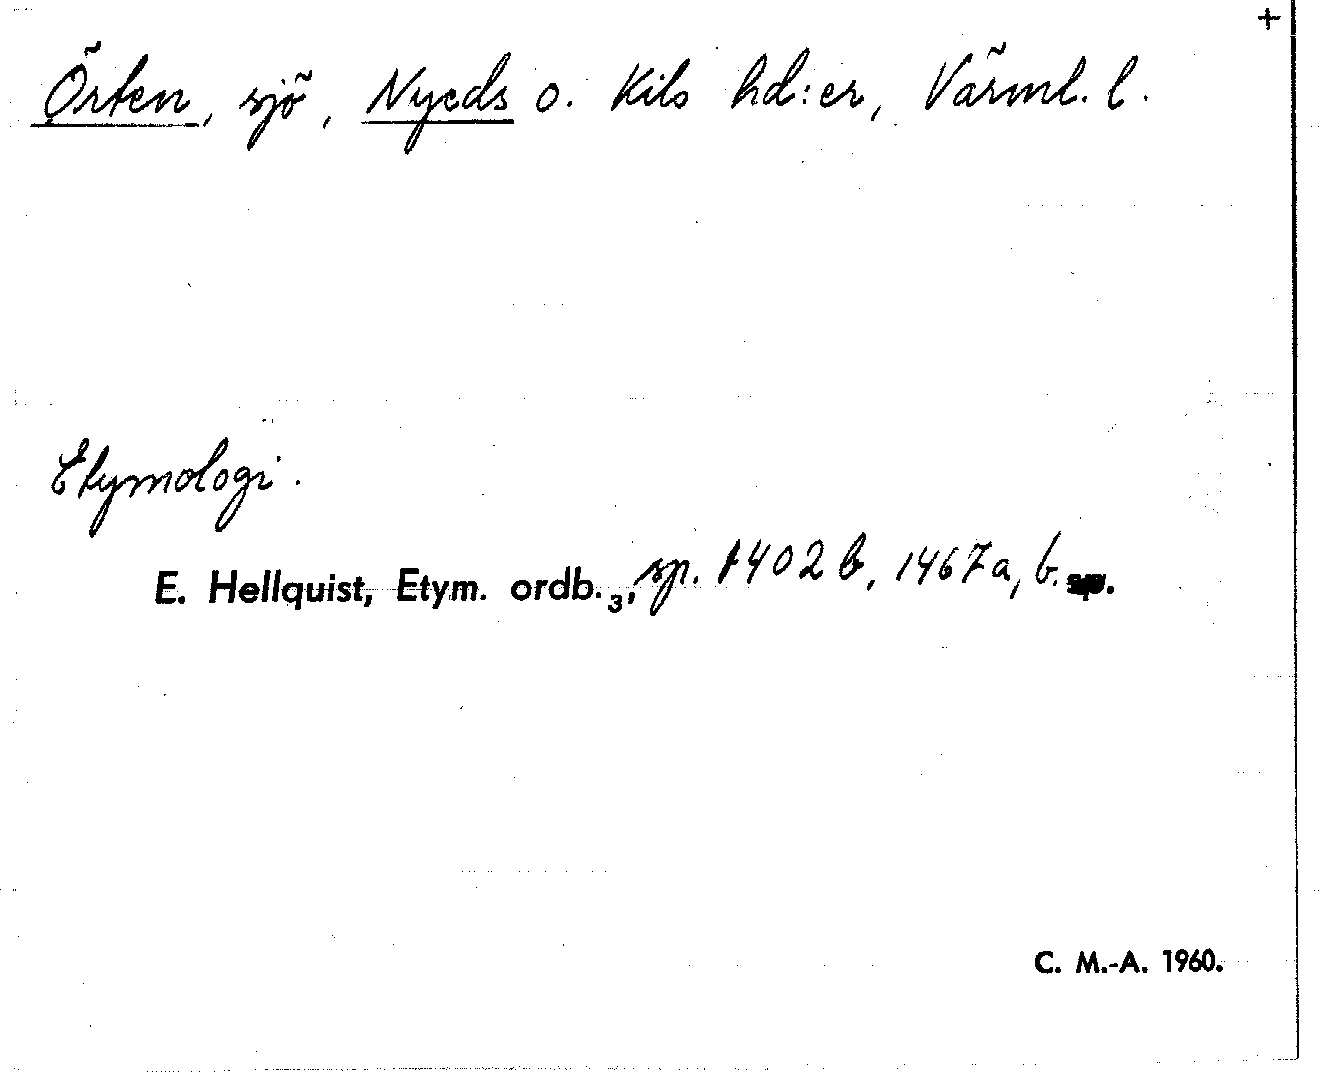 +
Örten, sjö, Nyeds o. Kils hd:er, Värml. l.
Etymologi.
E. Hellquist, Etym. ordb.₃, sp. 1402 b, 1467 a, b.
C. M.-A. 1960.